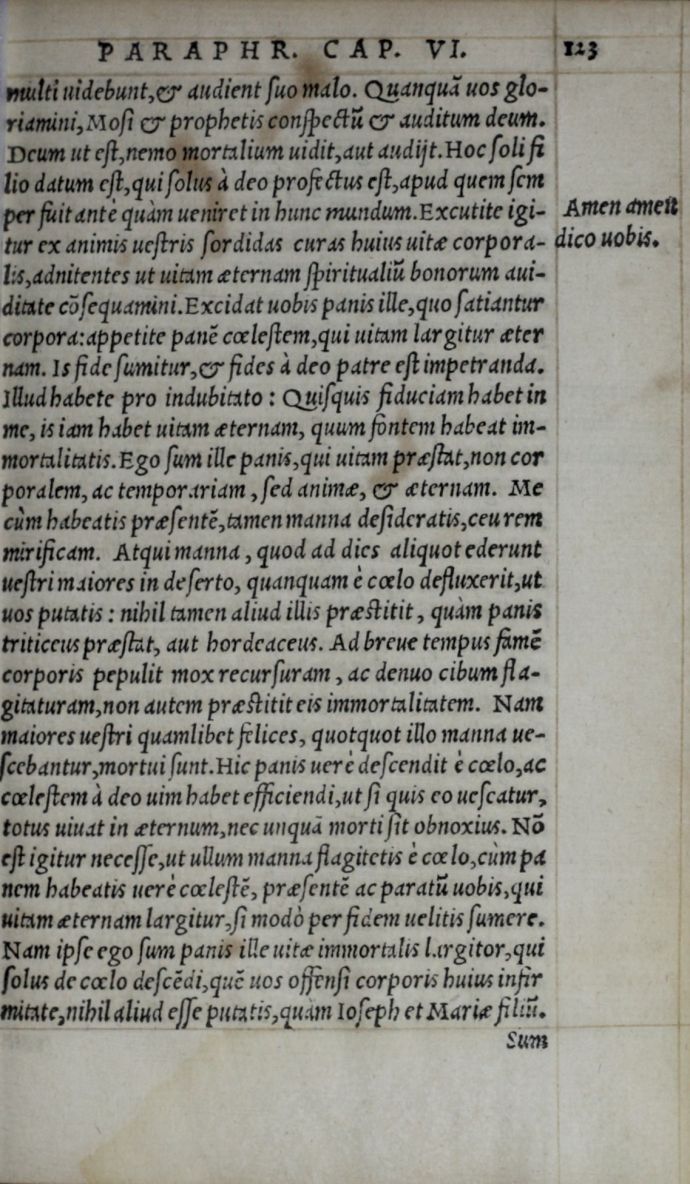 PARAPHR. CAP. VI. 123
multi uidebunt,& audient suo malo. Quanquã uos glo-
riamini, Mosi & prophetis conspectũ & auditum deum.
Deum ut est,nemo mortalium uidit,aut audijt.Hoc soli fi
lio datum est,qui solus à deo profectus est,apud quem sem
per fuit antè quàm ueniret in hunc mundum.Excutite igi-
tur ex animis uestris sordidas curas huius uitæ corpora-
lis,adnitentes ut uitam æternam spiritualiũ bonorum aui-
ditate cõsequamini.Excidat uobis panis ille,quo satiantur
corpora:appetite panẽ cœlestem,qui uitam largitur æter
nam. Is fide sumitur,& fides à deo patre est impetranda.
Illud habete pro indubitato : Quisquis fiduciam habet in
me, is iam habet uitam æternam, quum fontem habeat im-
mortalitatis.Ego sum ille panis,qui uitam præstat,non cor
poralem, ac temporariam , sed animæ, & æternam. Me
cùm habeatis præsentẽ,tamen manna desideratis,ceu rem
mirificam. Atqui manna , quod ad dies aliquot ederunt
uestri maiores in deserto, quanquam è cœlo defluxerit,ut
uos putatis : nihil tamen aliud illis præstitit , quàm panis
triticeus præstat, aut hordeaceus. Ad breue tempus famẽ
corporis pepulit mox recursuram , ac denuo cibum fla-
gitaturam,non autem præstitit eis immortalitatem. Nam
maiores uestri quamlibet felices, quotquot illo manna ue-
scebantur,mortui sunt.Hic panis uerè descendit è cœlo,ac
cœlestem à deo uim habet efficiendi,ut si quis eo uescatur,
totus uiuat in æternum,nec unquã morti sit obnoxius. Nõ
est igitur necesse,ut ullum manna flagitetis è cœlo,cùm pa
nem habeatis uerè cœlestẽ, præsentẽ ac paratũ uobis,qui
uitam æternam largitur,si modò per fidem uelitis sumere.
Nam ipse ego sum panis ille uitæ immortalis largitor,qui
solus de cœlo descẽdi,quẽ uos offensi corporis huius infir
mitate,nihil aliud esse putatis,quàm Ioseph et Mariæ filiũ.
Sum
Amen amen
dico uobis.